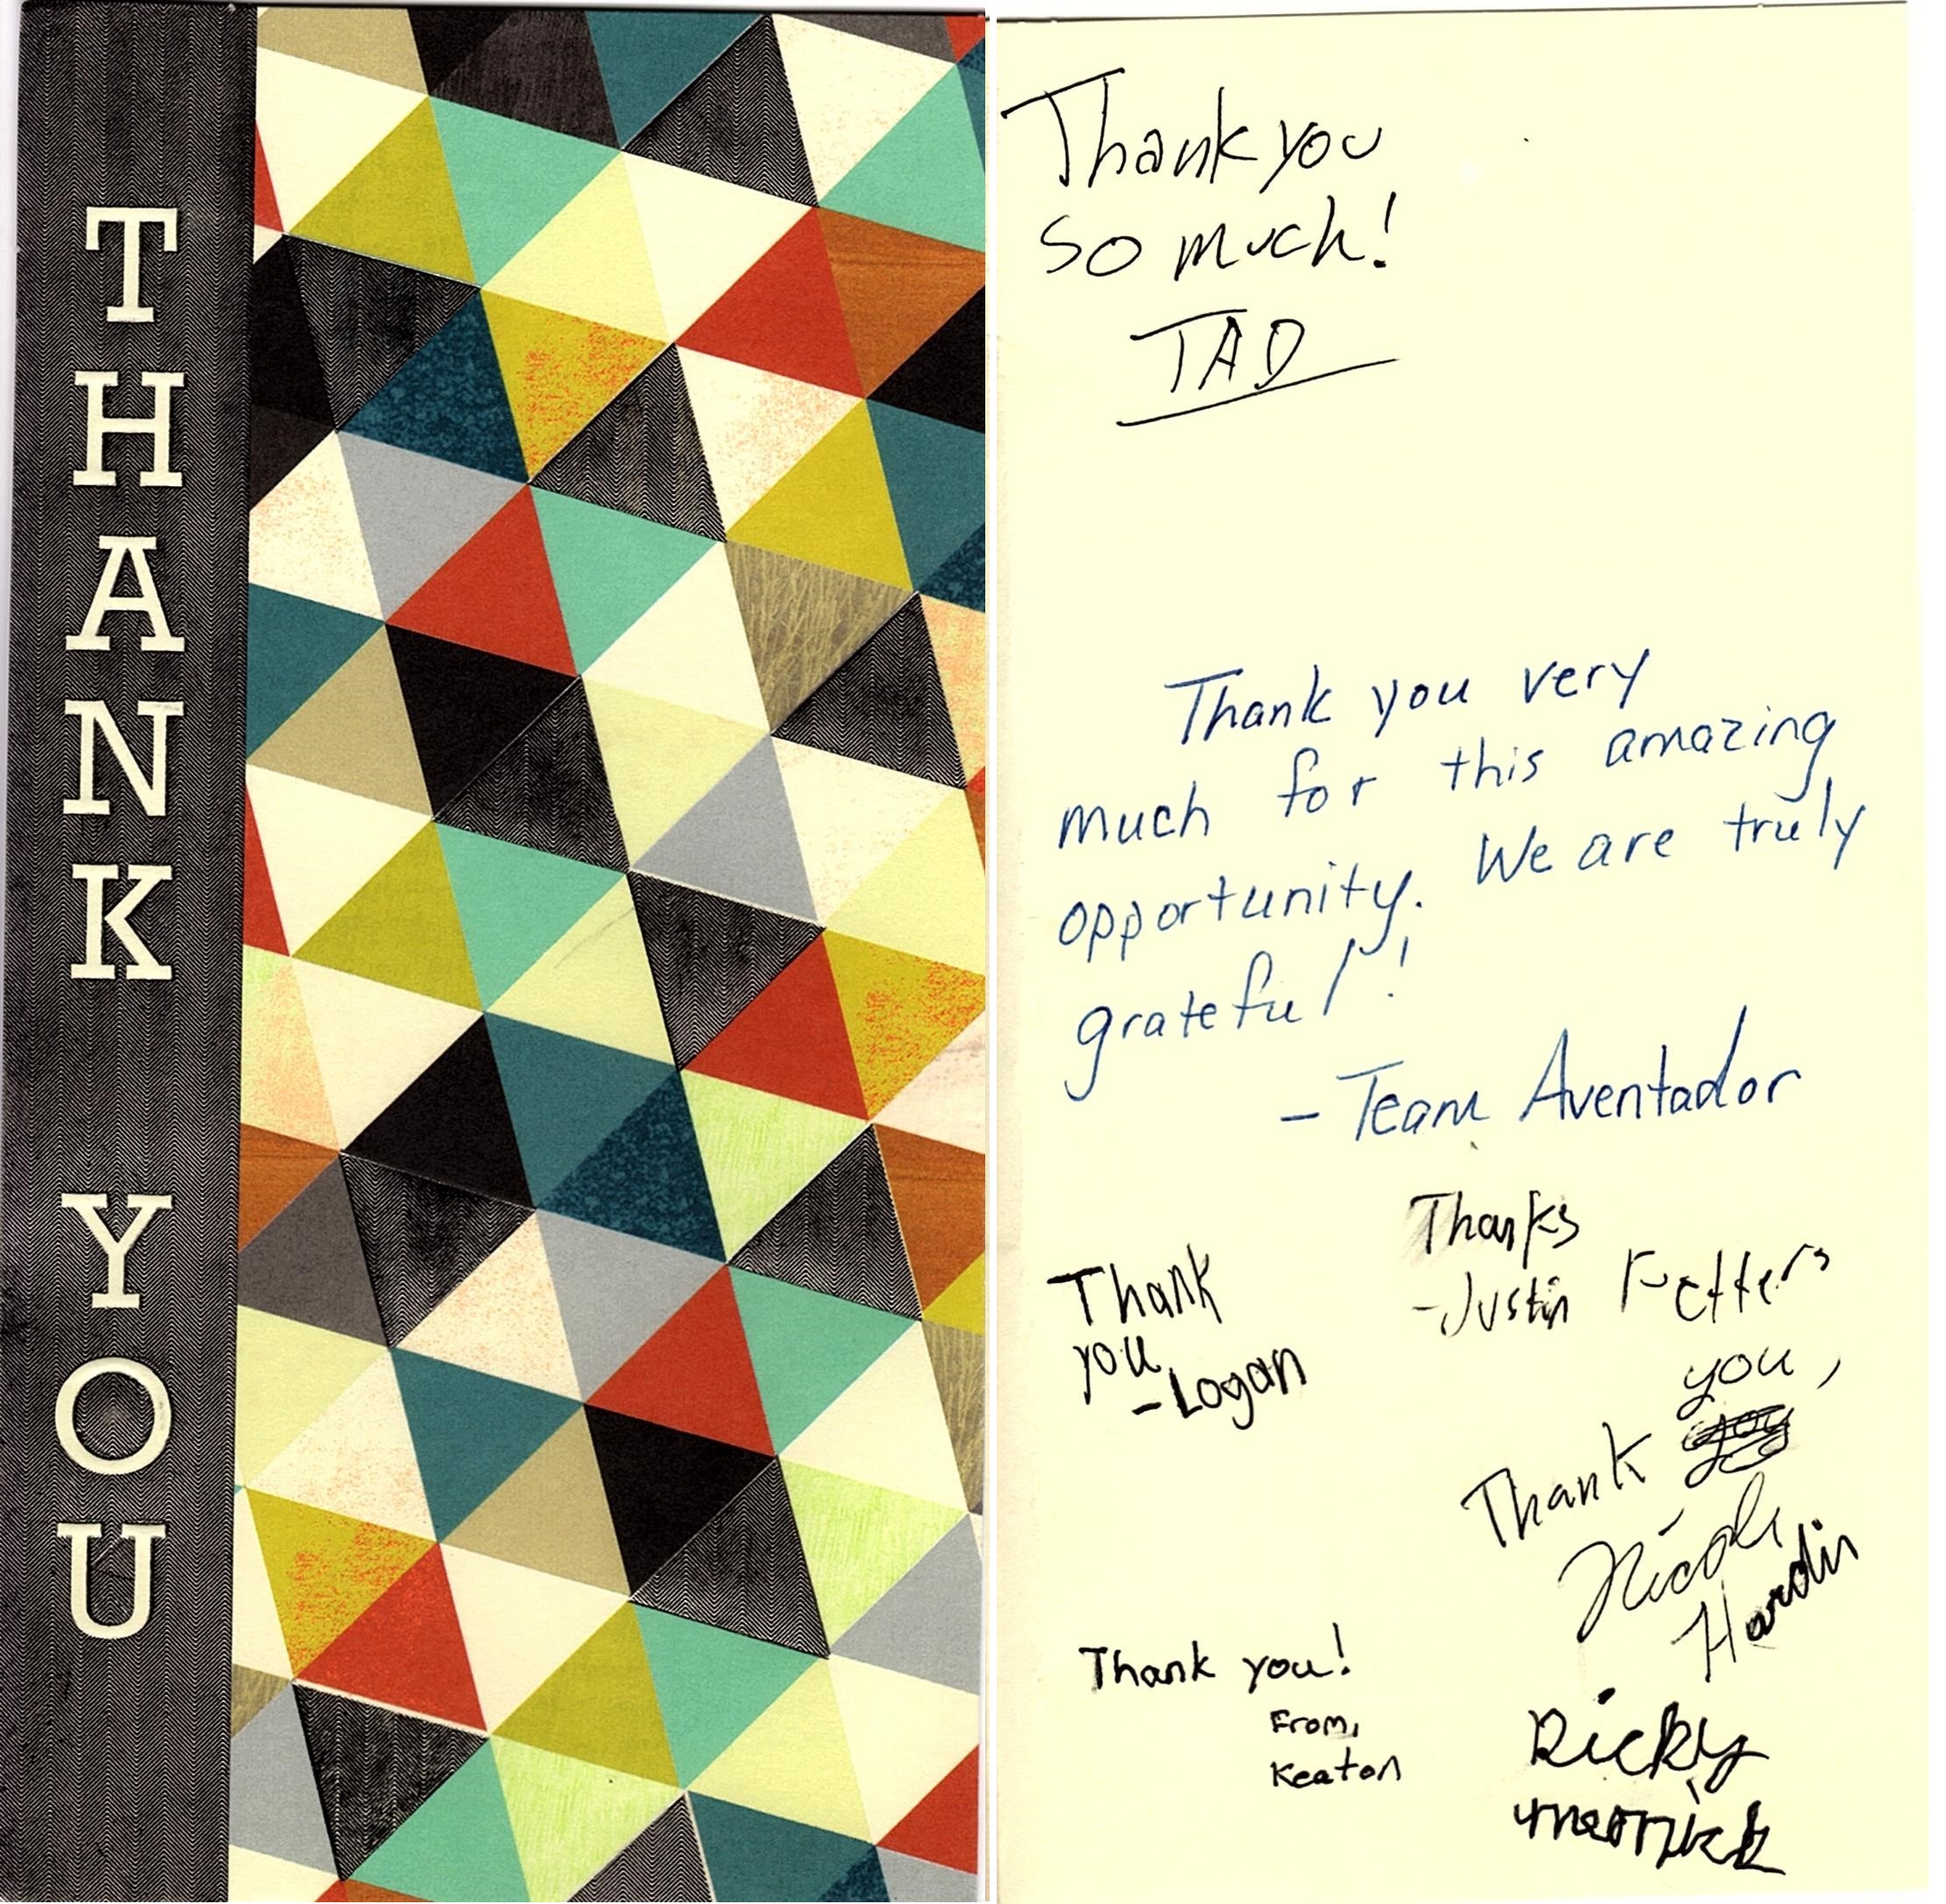 THANK YOU
Thank you
so much!
TAD
Thank you very
much for this amazing
opportunity. We are truly
grateful!
- Team Aventador
Thanks
- Justin Fetters
Thank
you
- Logan
you,
Thank you
Nicole
Hardin
Thank you!
From,
Keaton
Ricky
merrick